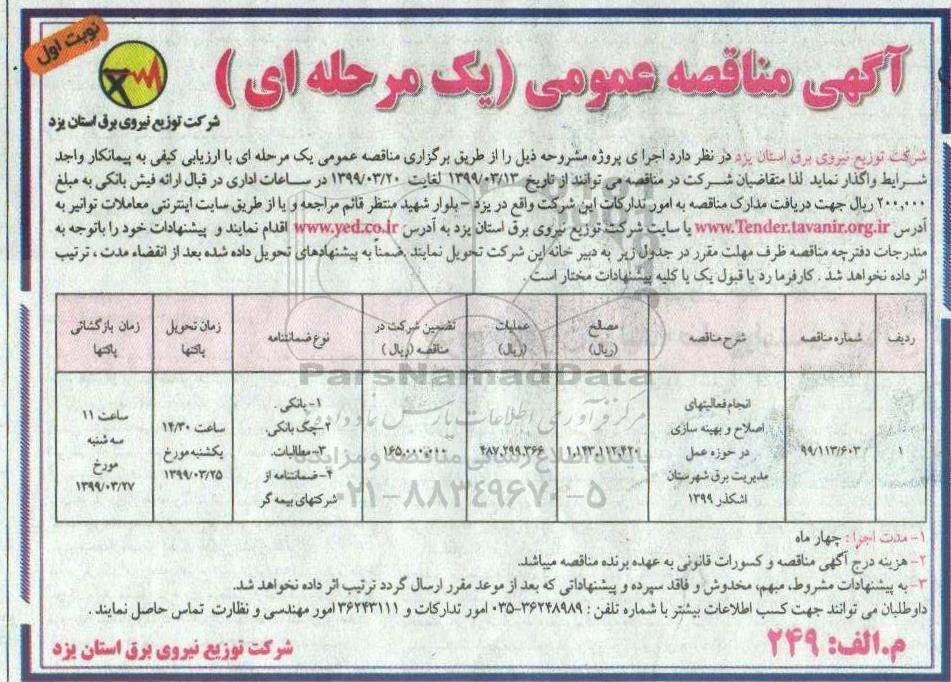 نوبت اول
آگهی مناقصه عمومی (یک مرحله ای)
شرکت توزیع نیروی برق استان یزد
شرکت توزیع نیروی برق استان یزد در نظر دارد اجرا ی پروژه مشروحه ذیل را از طریق برگزاری مناقصه عمومی یک مرحله ای با ارزیابی کیفی به پیمانکار واجد
شرایط واگذار نماید لذا متقاضیان شرکت در مناقصه می توانند از تاریخ ۱۳۹۹/۰۳/۱۳ لغایت ۱۳۹۹/۰۳/۲۰ در ساعات اداری در قبال ارائه فیش بانکی به مبلغ
۲۰۰,۰۰۰ ریال جهت دریافت مدارک مناقصه به امور تدارکات این شرکت واقع در یزد – بلوار شهید منتظر قائم مراجعه و یا از طریق سایت اینترنتی معاملات توانیر به
آدرس www.Tender.tavanir.org.ir یا سایت شرکت توزیع نیروی برق استان یزد به آدرس www.yed.co.ir اقدام نمایند و پیشنهادات خود را باتوجه به
مندرجات دفترچه مناقصه ظرف مهلت مقرر در جدول زیر به دبیر خانه این شرکت تحویل نمایند .ضمناً به پیشنهادهای تحویل داده شده بعد از انقضاء مدت ، ترتیب
اثر داده نخواهد شد . کارفرما رد یا قبول یک یا کلیه پیشنهادات مختار است .
ردیف شماره مناقصه شرح مناقصه مصالح (ریال) عملیات (ریال) تضمین شرکت در مناقصه (ریال) نوع ضمانتنامه زمان تحویل پاکتها زمان بازگشائی پاکتها
۱ ۹۹/۱۱۳/۶۰۳ انجام فعالیتهای اصلاح و بهینه سازی در حوزه عمل مدیریت برق شهرستان اشکذر ۱۳۹۹ ۱,۱۴۳,۱۱۲,۴۲۰ ۴۸۷,۲۹۹,۳۶۶ ۱۶۵,۰۰۰,۰۰۰ ۱– بانکی . ۲–چک بانکی. ۳– مطالبات. ۴– ضمانتنامه از شرکتهای بیمه گر ساعت ۱۴/۳۰ یکشنبه مورخ ۱۳۹۹/۰۳/۲۵ ساعت ۱۱ سه شنبه مورخ ۱۳۹۹/۰۳/۲۷
ParsNamadData
مرکز فرآوری اطلاعات پارس نماد داده
پایگاه اطلاع رسانی مناقصه و مزایده
۰۲۱–۸۸۳۴۹۶۷۰–۵
۱– مدت اجرا : چهار ماه
۲– هزینه درج آگهی مناقصه و کسورات قانونی به عهده برنده مناقصه میباشد.
۳– به پیشنهادات مشروط، مبهم، مخدوش و فاقد سپرده و پیشنهاداتی که بعد از موعد مقرر ارسال گردد ترتیب اثر داده نخواهد شد.
داوطلبان می توانند جهت کسب اطلاعات بیشتر با شماره تلفن : ۳۶۲۴۸۹۸۹–۰۳۵ امور تدارکات و ۳۶۲۴۳۱۱۱ امور مهندسی و نظارت تماس حاصل نمایند .
م.الف: ۲۴۹
شرکت توزیع نیروی برق استان یزد